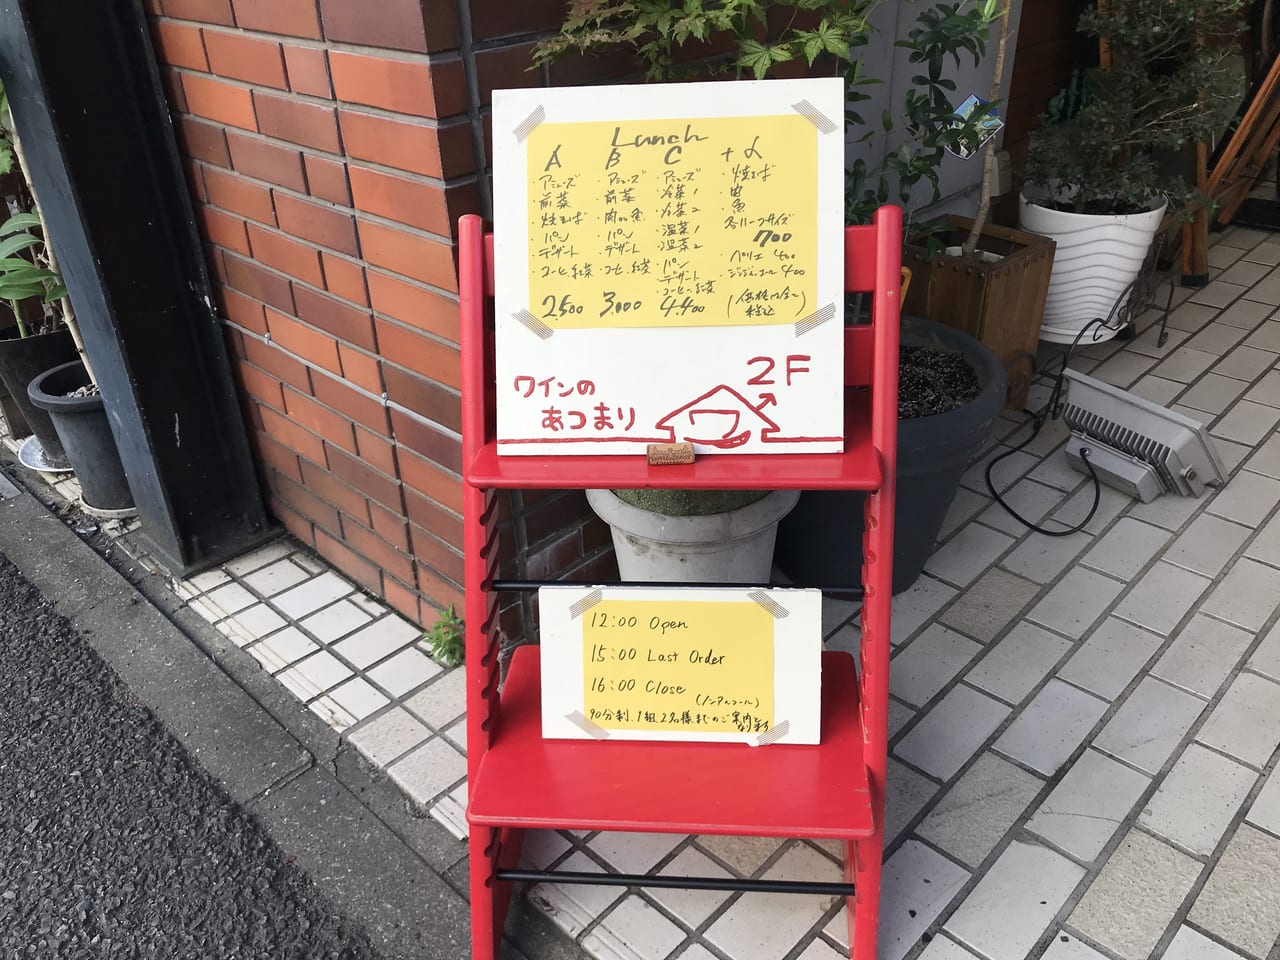 Lunch
A B C +α
・アミューズ
・前菜
・焼そば
・パン
・デザート
・コーヒー、紅茶
2.500
・アミューズ
・前菜
・肉or魚
・パン
・デザート
・コーヒー、紅茶
3.000
・アミューズ
・冷菜1
・冷菜2
・温菜1
・温菜2
・パン
・デザート
・コーヒー、紅茶
4.400
・焼そば
・肉
・魚
各ハーフサイズ
700
・ペリエ 400
・ジンジャエール 400
(価格は全て
税込)
2F
ワインの
あつまり
12:00 Open
15:00 Last Order
16:00 Close
(ノンアルコール)
90分制、1組2名様までのご案内と
なります